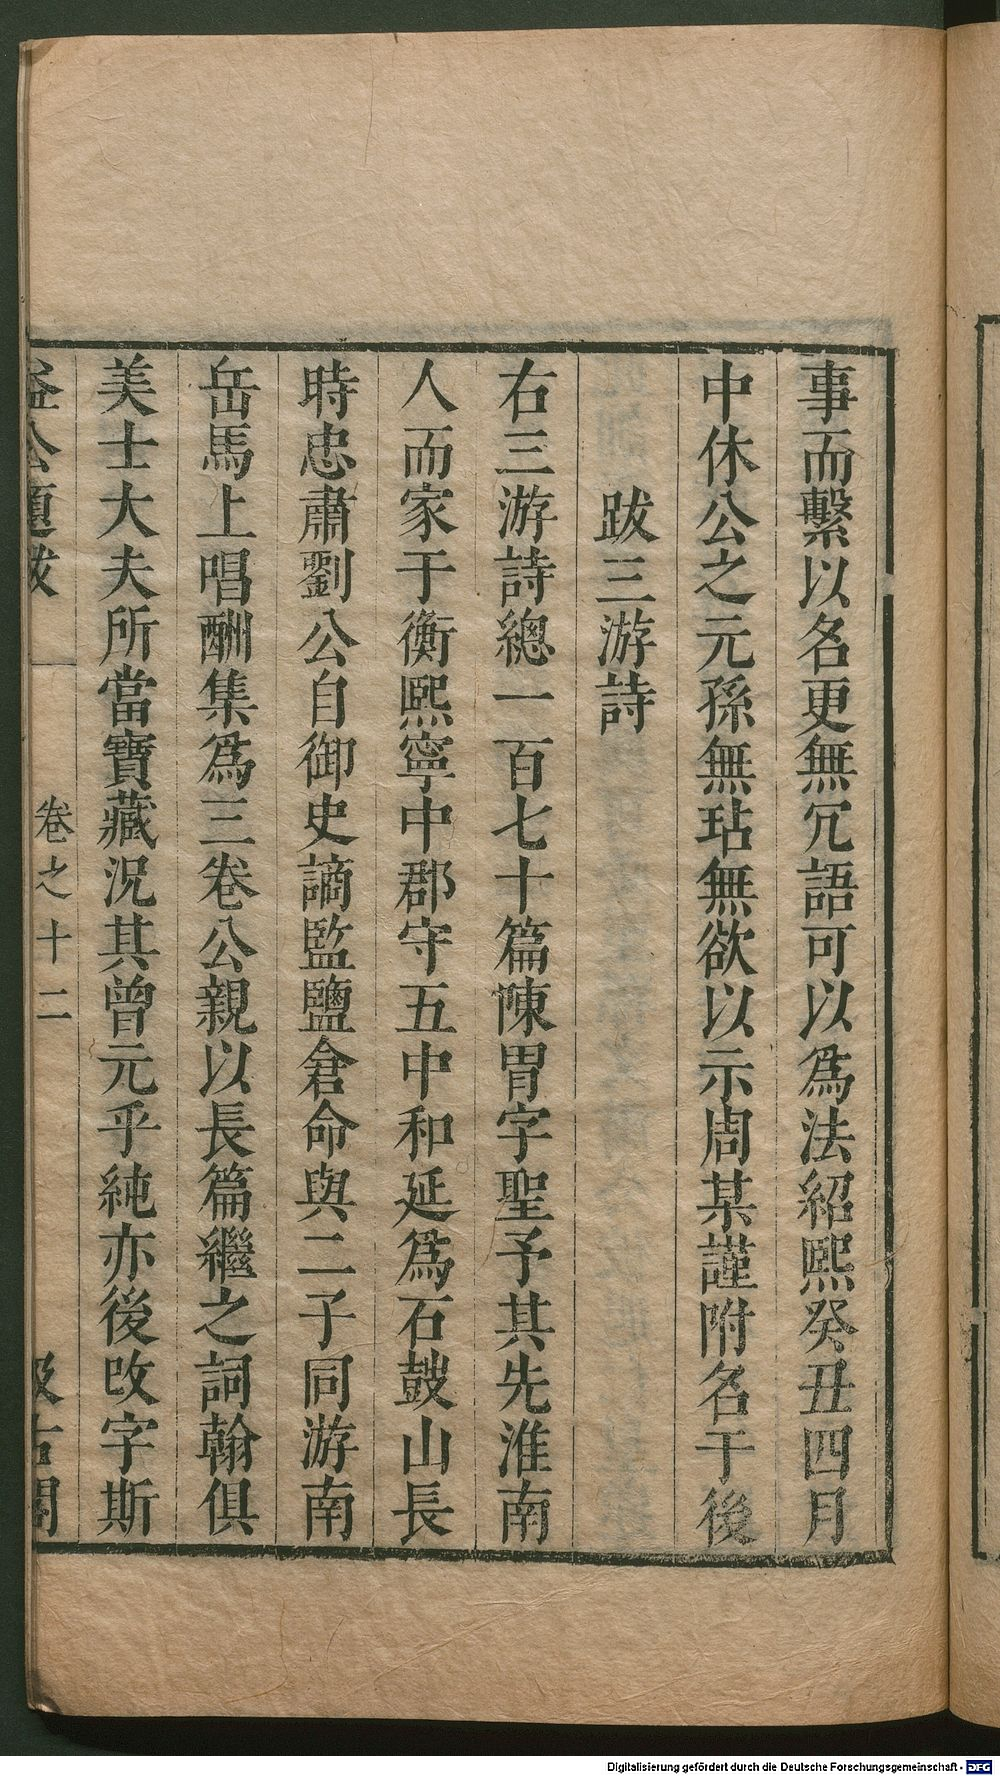 事而繫以名更無冗語可以爲法紹熙癸丑四月
中休公之元孫無玷無欲以示周某謹附名于後
跋三游詩
右三游詩總一百七十篇陳胃字聖予其先淮南
人而家于衡熙寧中郡守五中和延爲石鼓山長
時忠肅劉公自御史謫監鹽倉命與二子同游南
岳馬上唱酬集爲三卷公親以長篇繼之詞翰俱
美士大夫所當寶藏況其曾元乎純亦後改字斯
益公題跋 卷之十二 汲古閣
Digitalisierung gefördert durch die Deutsche Forschungsgemeinschaft - DFG